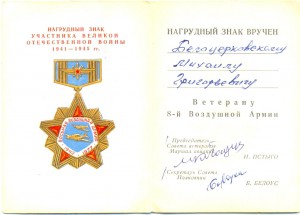 НАГРУДНЫЙ ЗНАК
УЧАСТНИКА ВЕЛИКОЙ
ОТЕЧЕСТВЕННОЙ ВОЙНЫ
1941—1945 гг.
НАГРУДНЫЙ ЗНАК ВРУЧЕН
Белоцерковскому
Михаилу
Григорьевичу
Ветерану
8-й Воздушной Армии
Председатель
Совета ветеранов
Маршал авиации
И. ПСТЫГО
Секретарь Совета
Полковник
В. БЕЛОУС